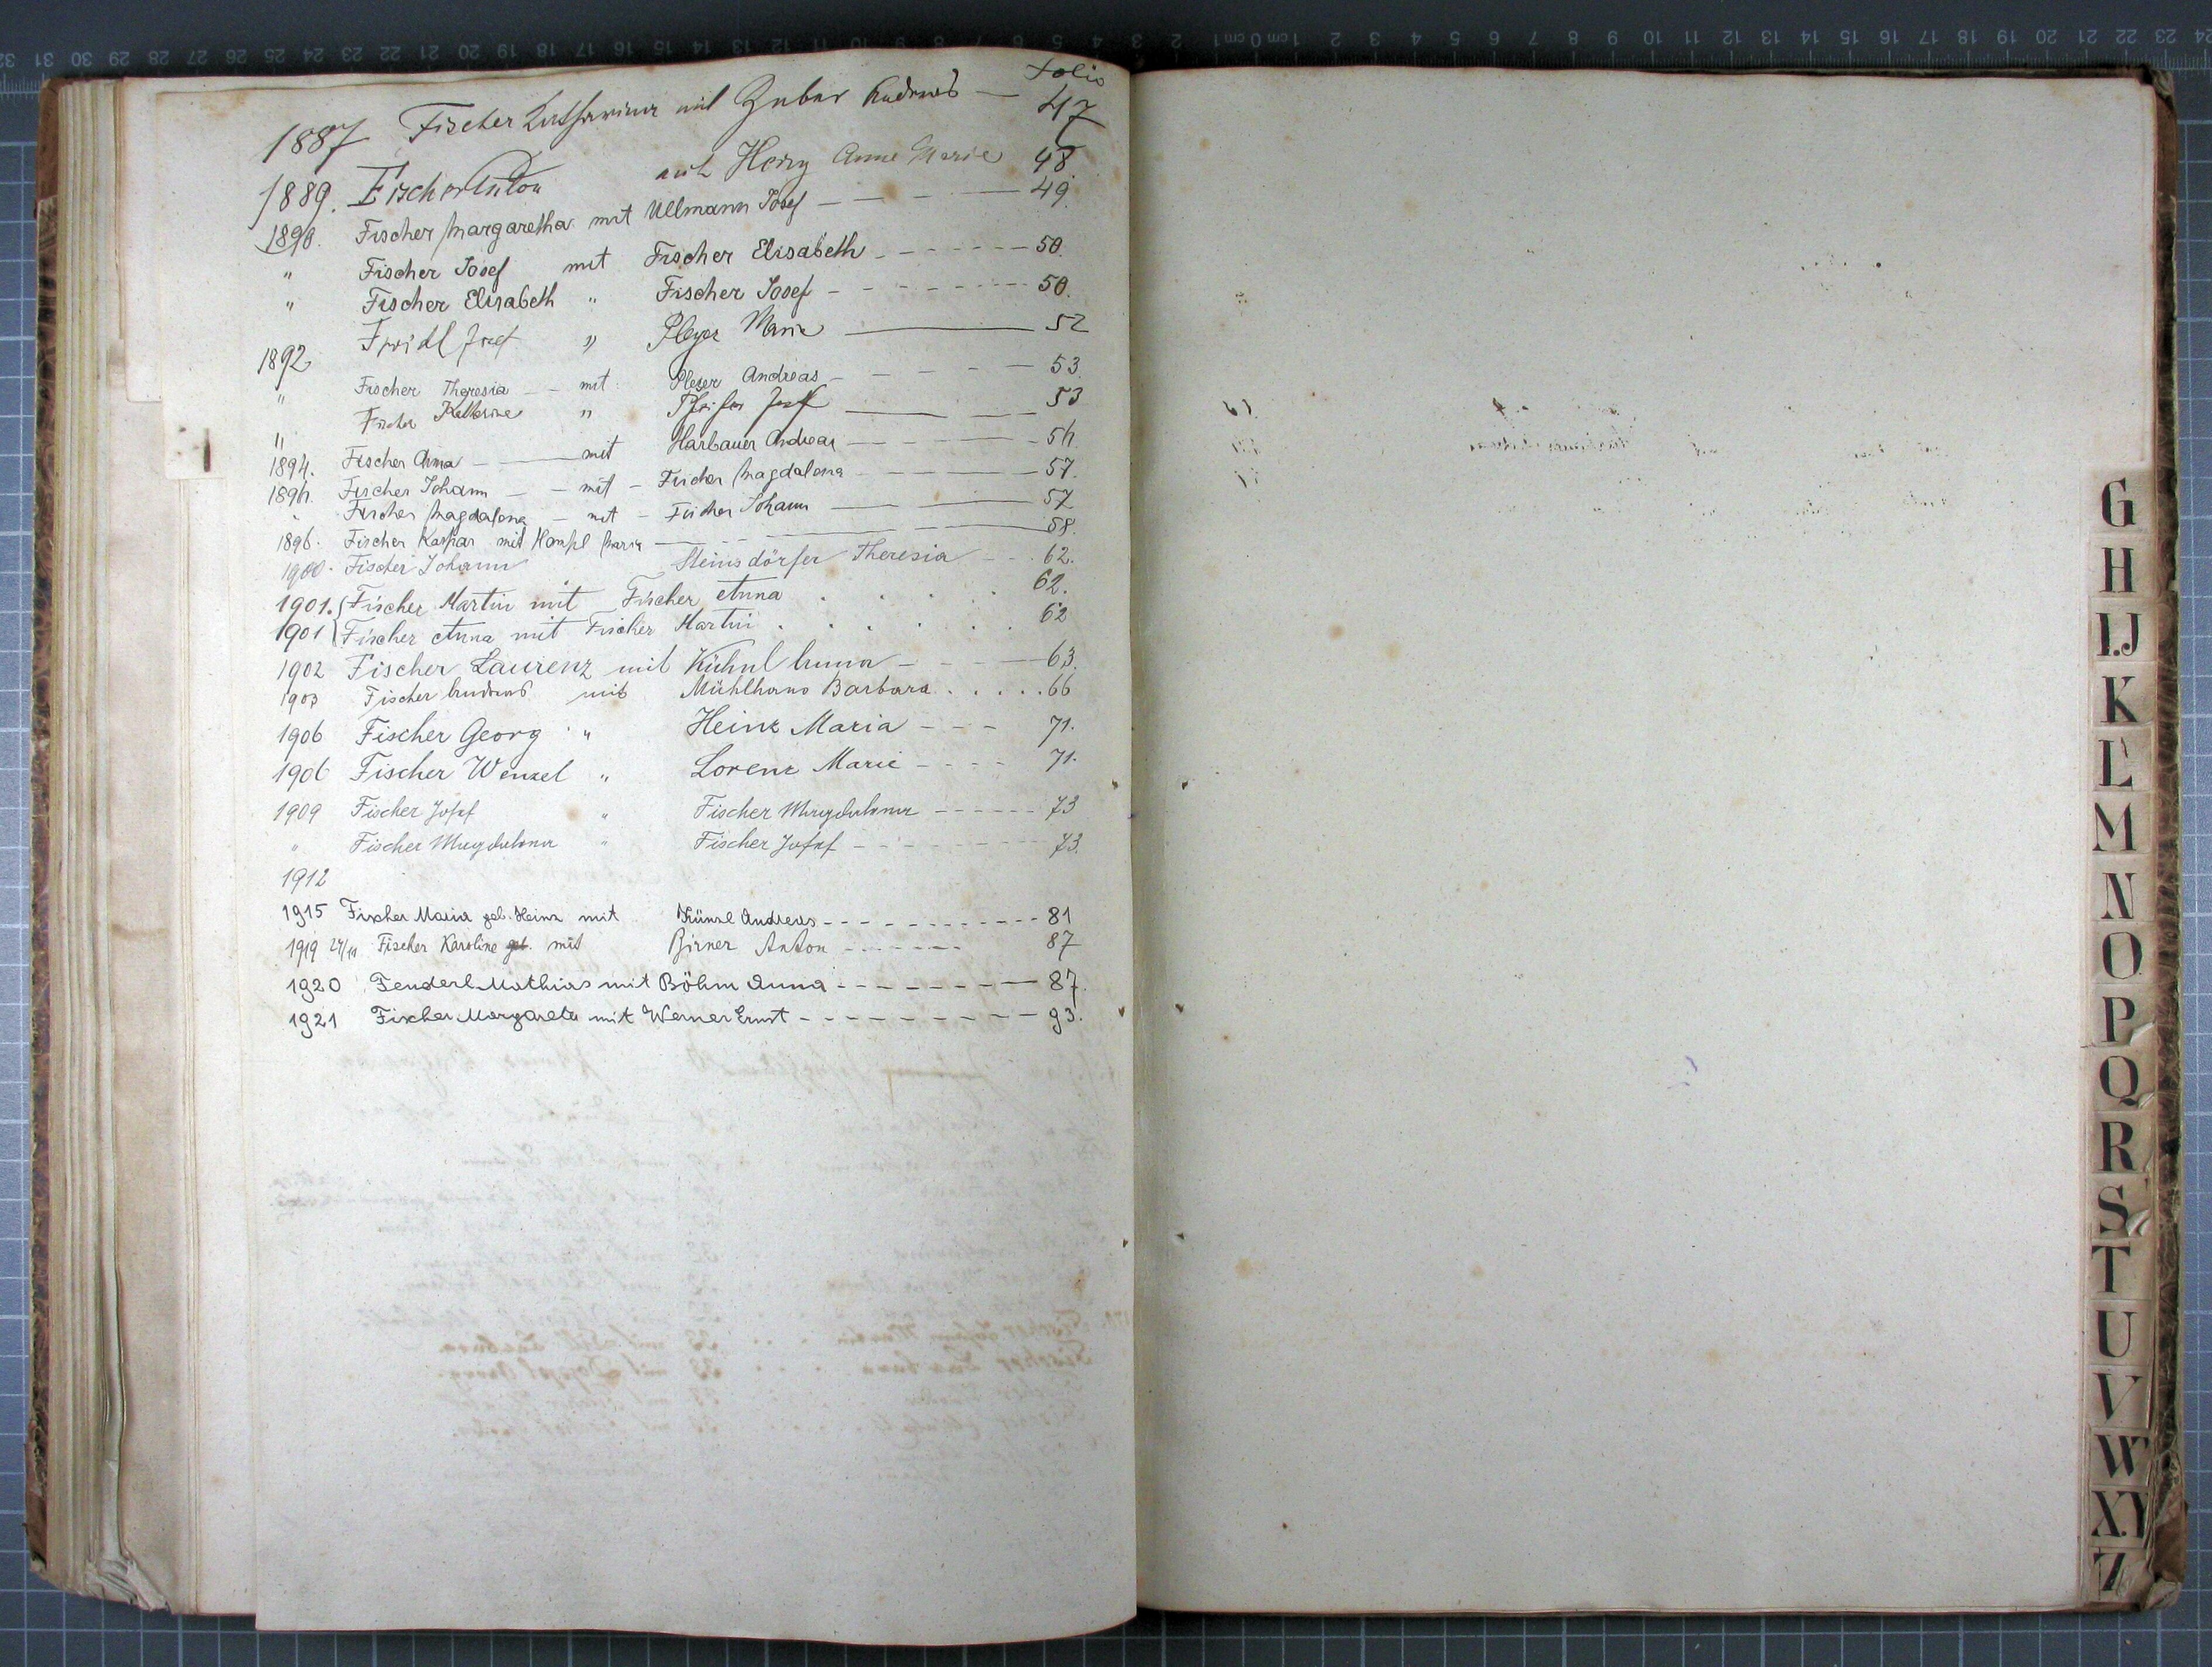 Folio
1887 Fischer Katharina mit Huber Andreas — 47
1889. Fischer Anton mit Henry Anne Marie 48
1890. Fischer Margaretha mit Ullmann Josef — — — 49.
" Fischer Josef mit Fischer Elisabeth - - - - - - 50.
" Fischer Elisabeth " Fischer Josef - - - - - - - - 50.
1892 Josef " Pleyer Maria — 52
" Fischer Theresia — mit Pleyer Andreas — — — — — 53.
" Fischer Katharina " Josef — — — 53
1894. Fischer Anna — mit Harbauer Andreas — — — — 54.
1894. Fischer Johann — — mit — Fischer Magdalena — — — — 57.
" Fischer Magdalena — mit — Fischer Johann — — — 57
1896. Fischer Kaspar mit Maria — — — 58.
1900. Fischer Johann Steinsdörfer Theresia — — 62.
1901. Fischer Martin mit Fischer Anna . . . . . 62.
1901 Fischer Anna mit Fischer Martin . . . . . . 62
1902 Fischer Laurenz mit Kühnl Anna — — — 63.
1903 Fischer Andreas mit Mühlhans Barbara . . . . . 66
1906 Fischer Georg " Heinz Maria — — — 71.
1906 Fischer Wenzel " Lorenz Marie — — — — 71.
1909 Fischer Josef " Fischer Magdalena - - - - - - 73
" Fischer Magdalena " Fischer Josef - - - - - - - - 73.
1912
1915 Fischer Maria geb. Heinz mit Künzl Andreas - - - - - - - - - - - 81
1919 Fischer Karoline geb. mit Birner Anton - - - - - - - 87
1920 Fenderl Mathias mit Böhm Anna - - - - - - - - 87.
1921 Fischer Margareta mit Werner Ernst - - - - - - - - - - 93.
G
H
I.J
K
L
M
N
O
P
Q
R
S
T
U
V
W
X.Y
Z